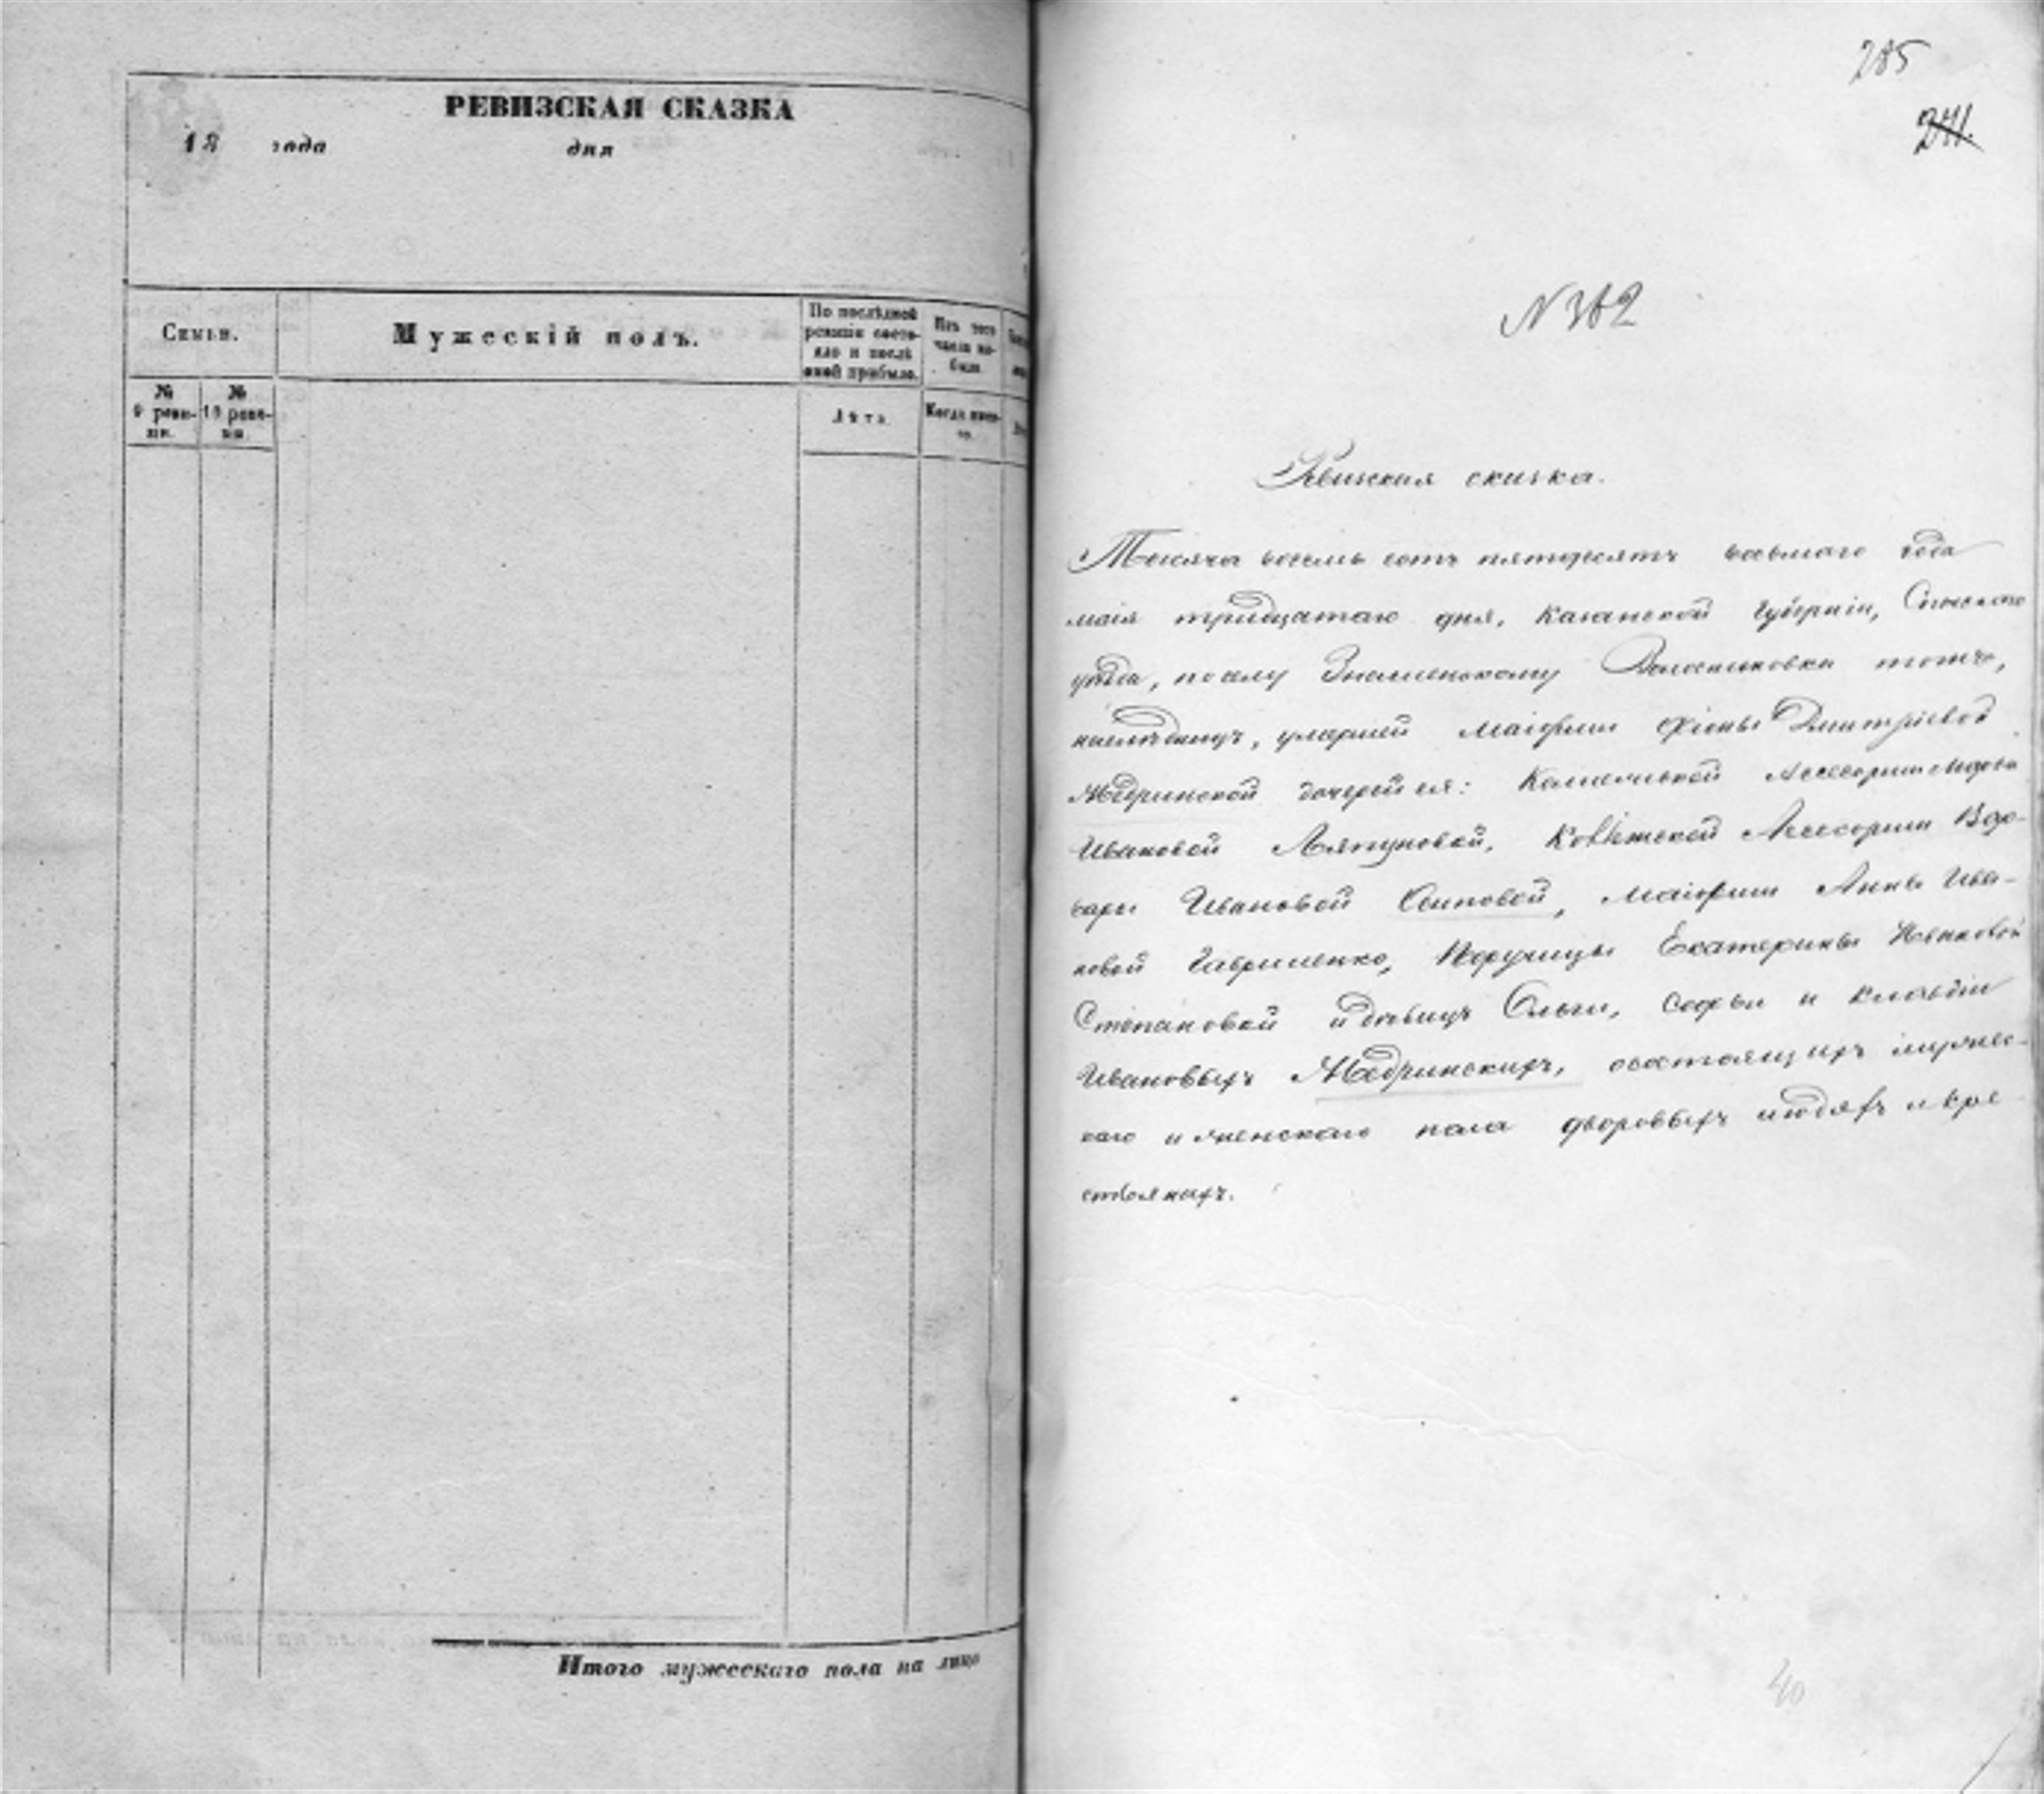 РЕВИЗСКАЯ СКАЗКА
18 года дня
Семьи.
Мужескій полъ.
По послѣдней
ревизіи состо-
яло и послѣ
оной прибыло.
Изъ того
числа вы-
было.
№
9 реви-
зіи.
№
10 реви-
зіи.
Лѣта.
Когда имен-
но.
Итого мужескаго пола на лицо
285
241.
N 362
Ревизская сказка.
Тысяча восемь сотъ пятьдесятъ восьмаго года
маія тридцатаго дня, Казанской губерніи, Спаскаго
уѣзда, по селу Знаменскому тожъ,
наслѣдницъ, умершей Маіорши Фіоны Дмитріевой
дочерей ея: Колежской Ассесорши
Ивановой Ляпуновой, Колѣжской Ассесорши Вар-
вары Ивановой Осиповой, Маіорши Анны Ива-
новой Гавриленко, Порутчицы Екатерины Ивановой
Степановой и дѣвицъ Ольги, Софьи и Клавдіи
Ивановыхъ Мѣдринскихъ, о состоящихъ мужес-
каго и женскаго пола дворовыхъ людяхъ и кре-
стьянахъ.
40